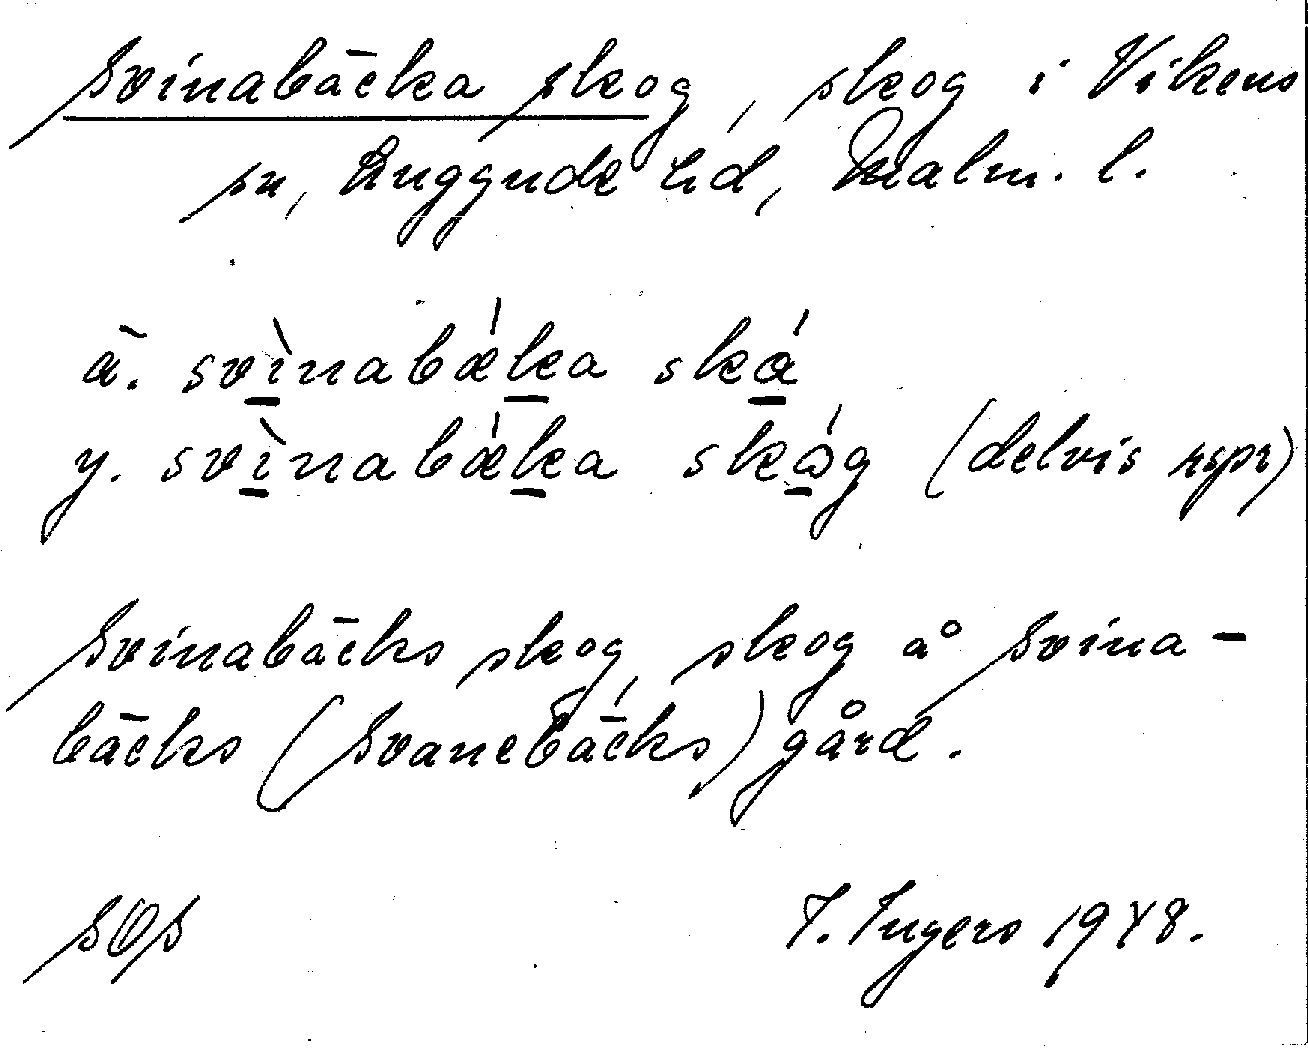 Svinabäcka skog, skog i Vikens
sn, Luggude hd, Malm. l.
ä. svìnabǽka skǻ
y. svìnabǽka skǻg (delvis rspr)
Svinabäcks skog, skog å Svina-
bäcks (Svanebäcks) gård.
SOS
I. Ingers 1948.